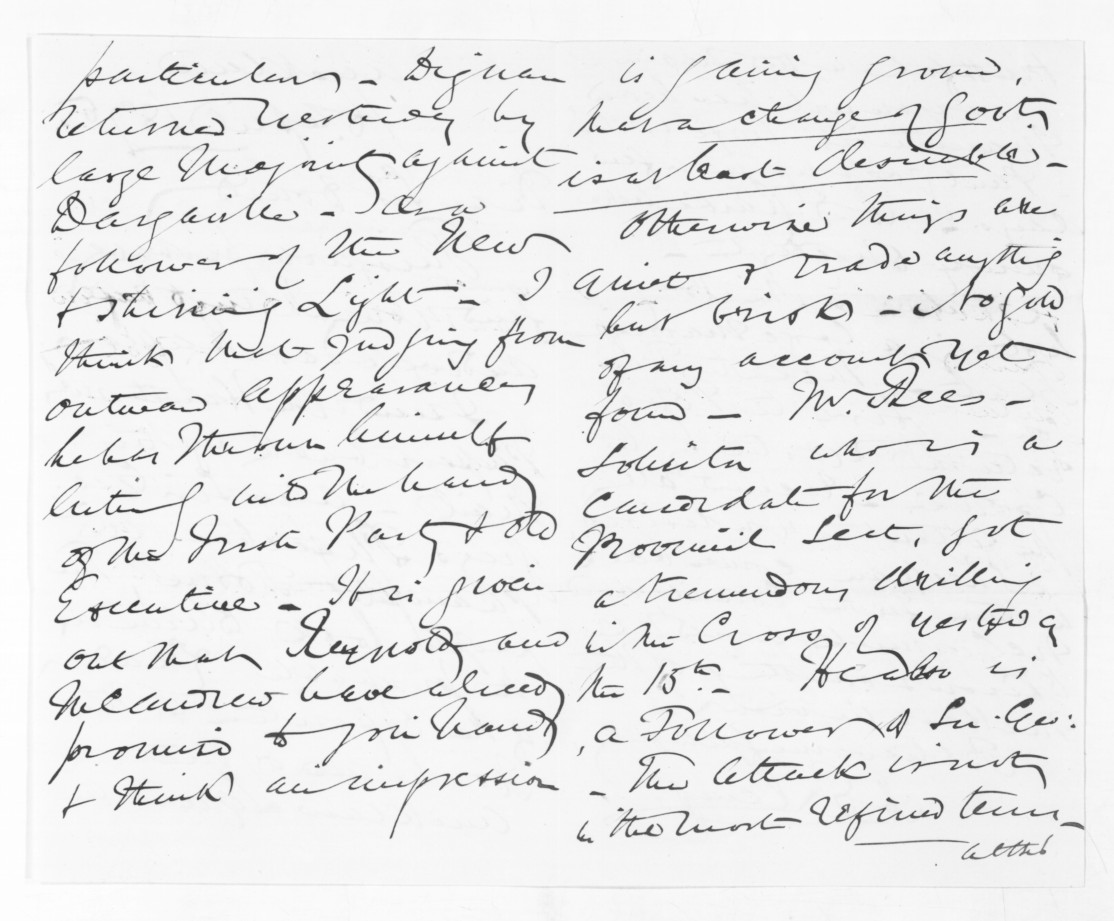 particulars - Dignan
returned Yesterday by
large Majority against
Dargaville - as a
follower of the New
& Shining Light - I
think that judging from
outward appearances
he has thrown himself
entirely into the hands
of the Irish Party & old
Executive - It is given
out that Reynolds and
McAndrew have already
promised to join hands
& think an impression
is gaining ground,
that a change of Govt.
is at least desirable -
Otherwise things are
quiet & trade anything
but brisk - & no gold
of any account yet
found - Mr. Rees -
Solicitor who is a
Candidate for the
Provincial Seat, got
a tremendous drilling
in the Cross of yesterday
the 15th - He also is
a Follower of Sir Geo:
- The attack is not
in the most refined terms -